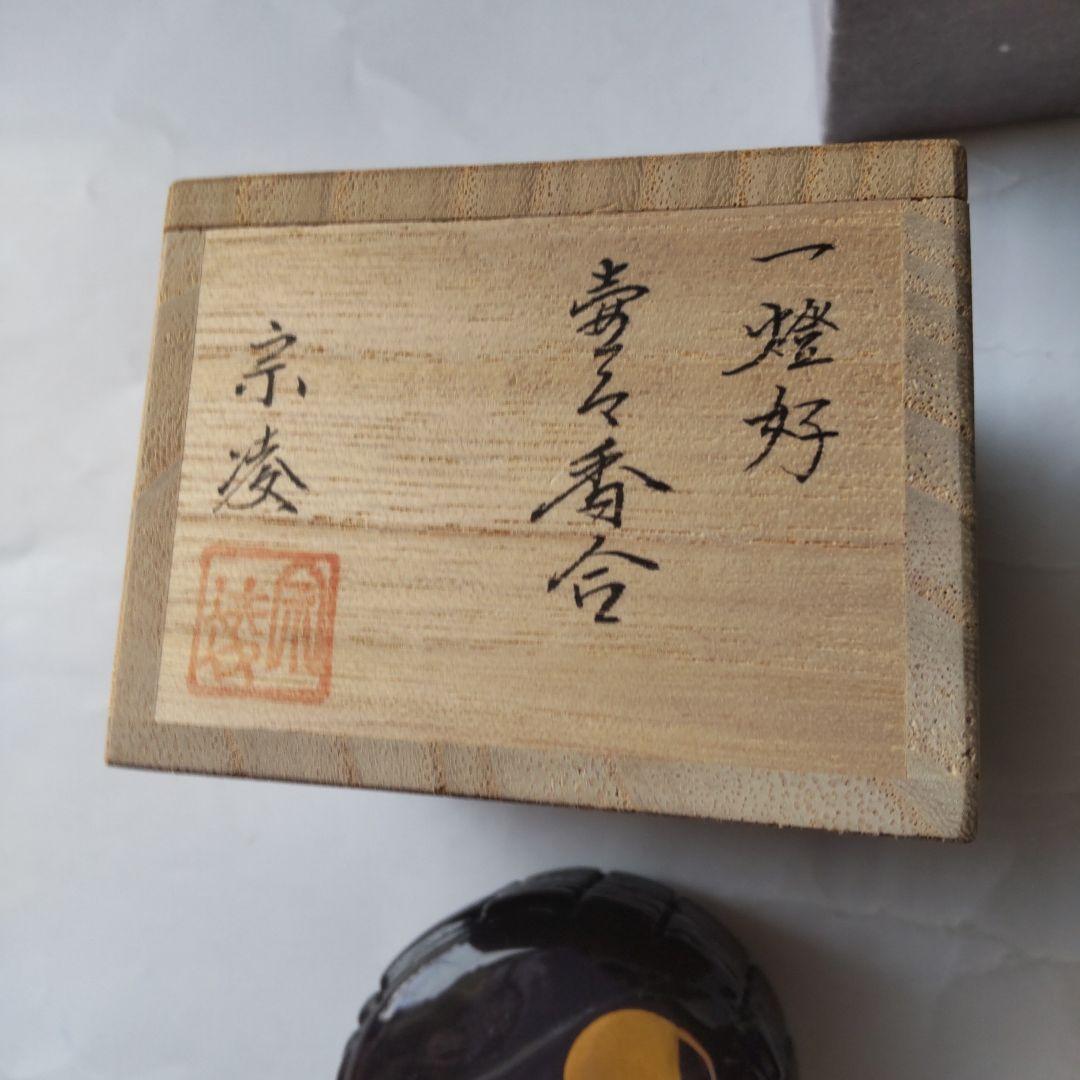 一燈好
壷々香合
宗凌
宗凌